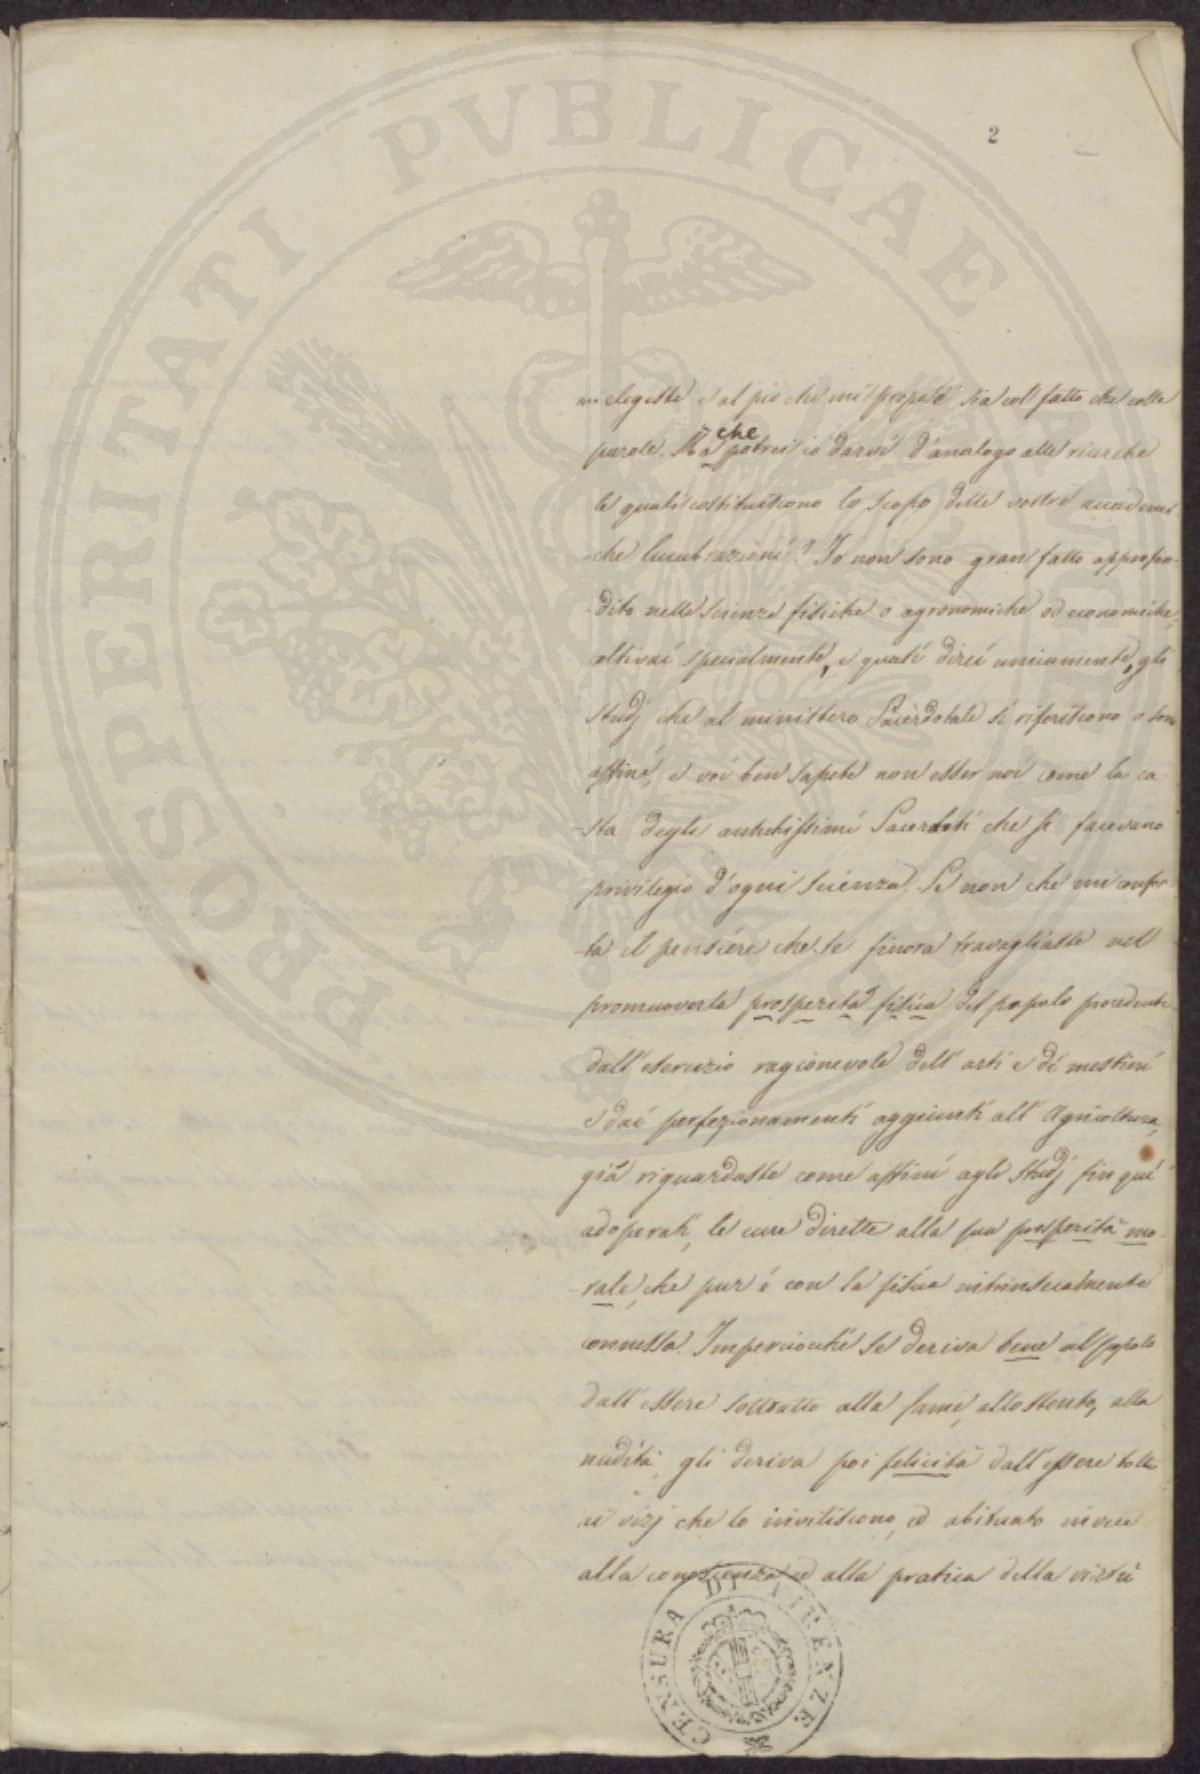 2
mi elegeste e al pio che mi proposi sia col fatto che colle
parole. Ma che potrei io darvi d'analogo alle ricerche
le quali costituiscono lo scopo delle vostre accademi
-che lucubrazioni? Io non sono gran fatto approfon-
-dito nelle scienze fisiche o agronomiche od economiche,
coltivai specialmente, e quasi direi unicamente, gli
studj che al ministero Sacerdotale si riferiscono o sono
affini, e voi ben sapete non esser noi come la ca
-sta degli antichissimi Sacerdoti che si facevano
privilegio d'ogni scienza. Se non che mi confor
-ta il pensiere che se finora travagliaste nel
promuover la prosperità fisica del popolo procedente
dall'esercizio ragionevole dell'arti e di mestieri
e dai perfezionamenti aggiunti all'Agricoltura,
già riguardaste come affini agli studj fin quì
adoperati, le cure dirette alla sua prosperità mo-
-rale, che pur è con la fisica intrinsecamente
connessa. Imperciocchè se deriva bene al popolo
dall'essere sottratto alla fame, allo stento, alla
nudità, gli deriva poi felicità dall'essere tolto
ai vizj che lo inviliscono, ed abituato invece
alla conoscenza ed alla pratica della virtù
CENSURA DI FIRENZE
PROSPERITATI PVBLICAE